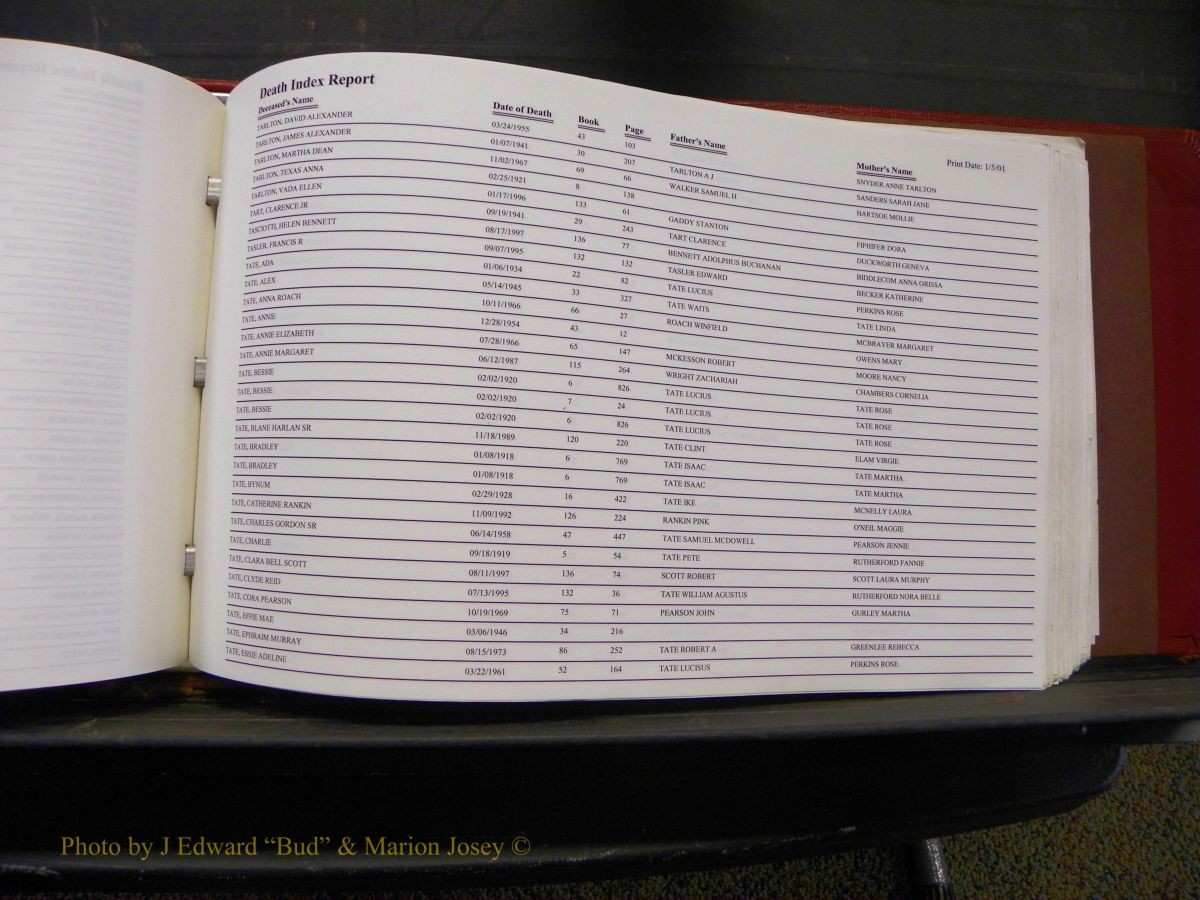 Death Index Report
Print Date: 1/5/01
Deceased's Name Date of Death Book Page Father's Name Mother's Name
TARLTON, DAVID ALEXANDER 03/24/1955 43 103 SNYDER ANNE TARLTON
TARLTON, JAMES ALEXANDER 01/07/1941 30 207 TARLTON A J SANDERS SARAH JANE
TARLTON, MARTHA DEAN 11/02/1967 69 66 WALKER SAMUEL H HARTSOE MOLLIE
TARLTON, TEXAS ANNA 02/25/1921 8 138
TARLTON, VADA ELLEN 01/17/1996 133 61 GADDY STANTON FIPHIFER DORA
TART, CLARENCE JR 09/19/1941 29 243 TART CLARENCE DUCKWORTH GENEVA
TASCIOTTI, HELEN BENNETT 08/17/1997 136 77 BENNETT ADOLPHUS BUCHANAN BIDDLECOM ANNA ORISSA
TASLER, FRANCIS R 09/07/1995 132 132 TASLER EDWARD BECKER KATHERINE
TATE, ADA 01/06/1934 22 82 TATE LUCIUS PERKINS ROSE
TATE, ALEX 05/14/1945 33 327 TATE WAITS TATE LINDA
TATE, ANNA ROACH 10/11/1966 66 27 ROACH WINFIELD MCBRAYER MARGARET
TATE, ANNIE 12/28/1954 43 12 OWENS MARY
TATE, ANNIE ELIZABETH 07/28/1966 65 147 MCKESSON ROBERT MOORE NANCY
TATE, ANNIE MARGARET 06/12/1987 115 264 WRIGHT ZACHARIAH CHAMBERS CORNELIA
TATE, BESSIE 02/02/1920 6 826 TATE LUCIUS TATE ROSE
TATE, BESSIE 02/02/1920 7 24 TATE LUCIUS TATE ROSE
TATE, BESSIE 02/02/1920 6 826 TATE LUCIUS TATE ROSE
TATE, BLANE HARLAN SR 11/18/1989 120 220 TATE CLINT ELAM VIRGIE
TATE, BRADLEY 01/08/1918 6 769 TATE ISAAC TATE MARTHA
TATE, BRADLEY 01/08/1918 6 769 TATE ISAAC TATE MARTHA
TATE, BYNUM 02/29/1928 16 422 TATE IKE MCNELLY LAURA
TATE, CATHERINE RANKIN 11/09/1992 126 224 RANKIN PINK O'NEIL MAGGIE
TATE, CHARLES GORDON SR 06/14/1958 47 447 TATE SAMUEL MCDOWELL PEARSON JENNIE
TATE, CHARLIE 09/18/1919 5 54 TATE PETE RUTHERFORD FANNIE
TATE, CLARA BELL SCOTT 08/11/1997 136 74 SCOTT ROBERT SCOTT LAURA MURPHY
TATE, CLYDE REID 07/13/1995 132 36 TATE WILLIAM AGUSTUS RUTHERFORD NORA BELLE
TATE, CORA PEARSON 10/19/1969 75 71 PEARSON JOHN GURLEY MARTHA
TATE, EFFIE MAE 03/06/1946 34 216
TATE, EPHRAIM MURRAY 08/15/1973 86 252 TATE ROBERT A GREENLEE REBECCA
TATE, ESSIE ADELINE 03/22/1961 52 164 TATE LUCISUS PERKINS ROSE
Photo by J Edward “Bud” & Marion Josey ©